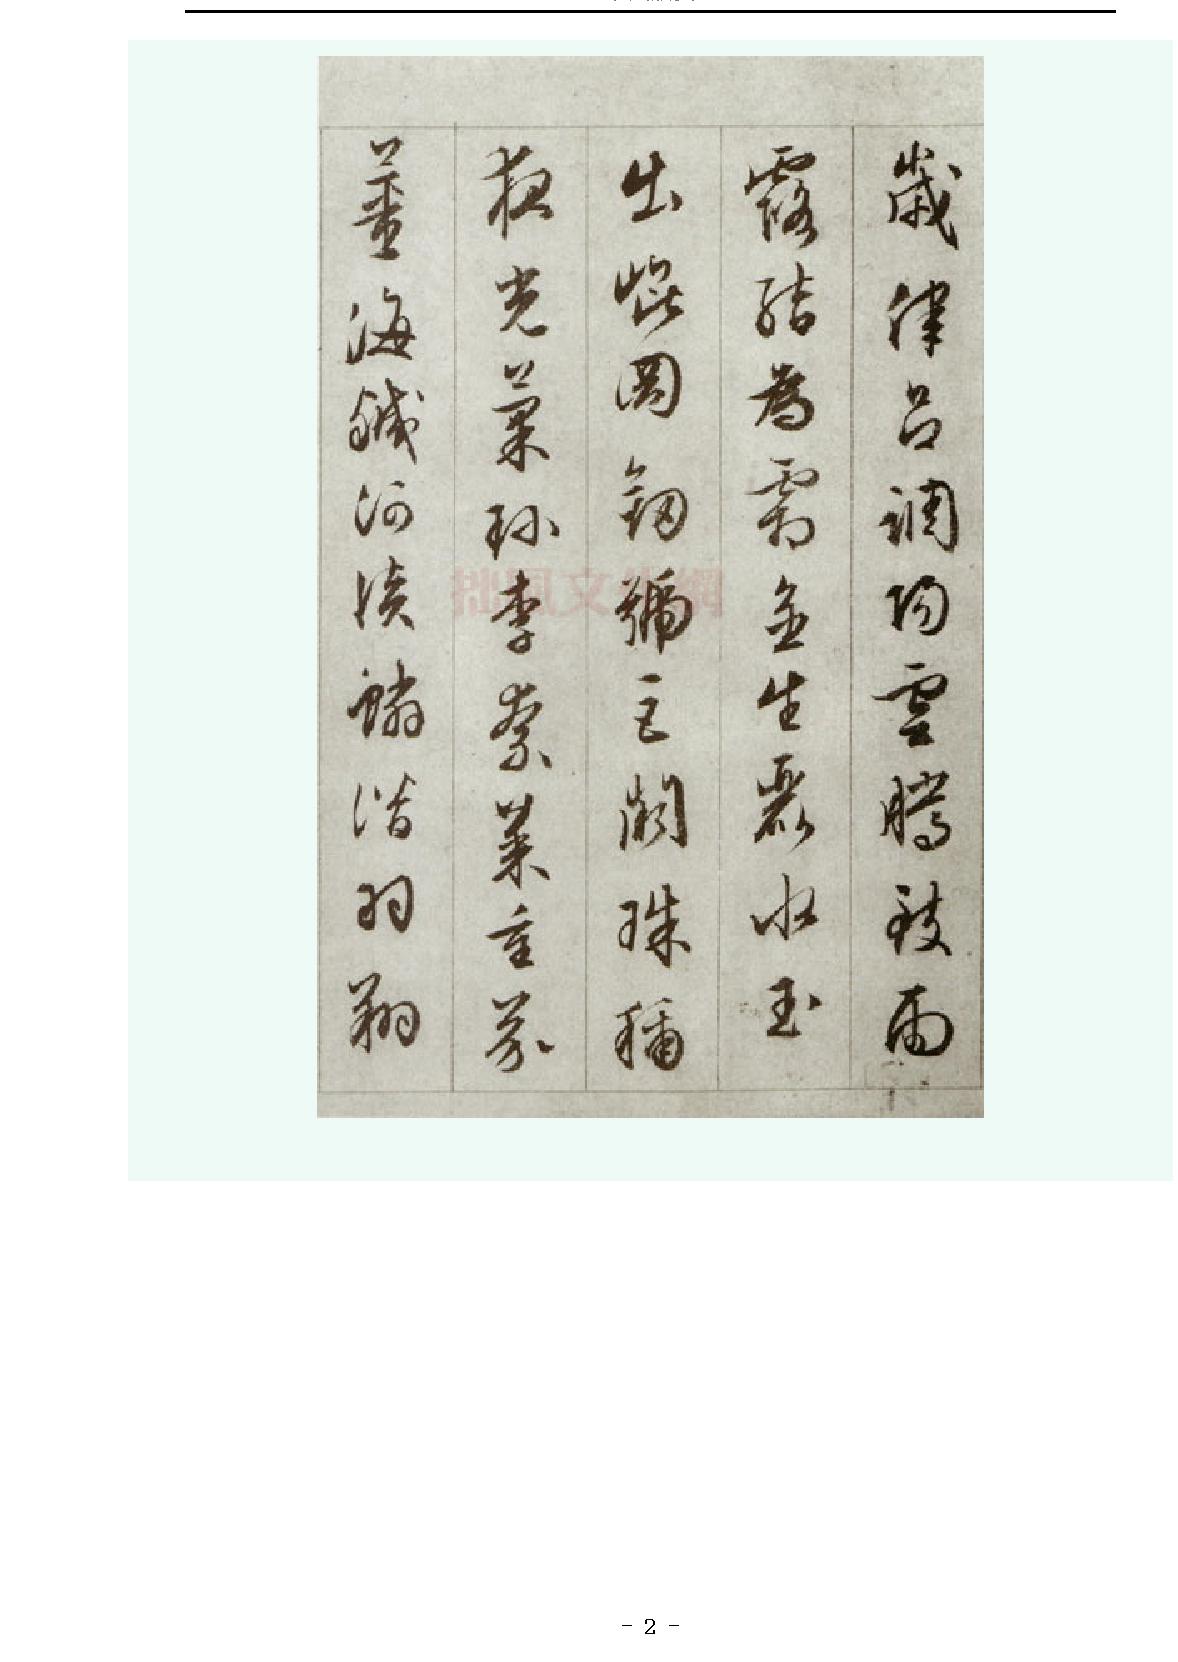 歲律呂調陽雲騰致雨
露結為霜金生麗水玉
出崐岡劍號巨闕珠稱
夜光菓珍李柰菜重芥
薑海鹹河淡鱗潛羽翔
- 2 -